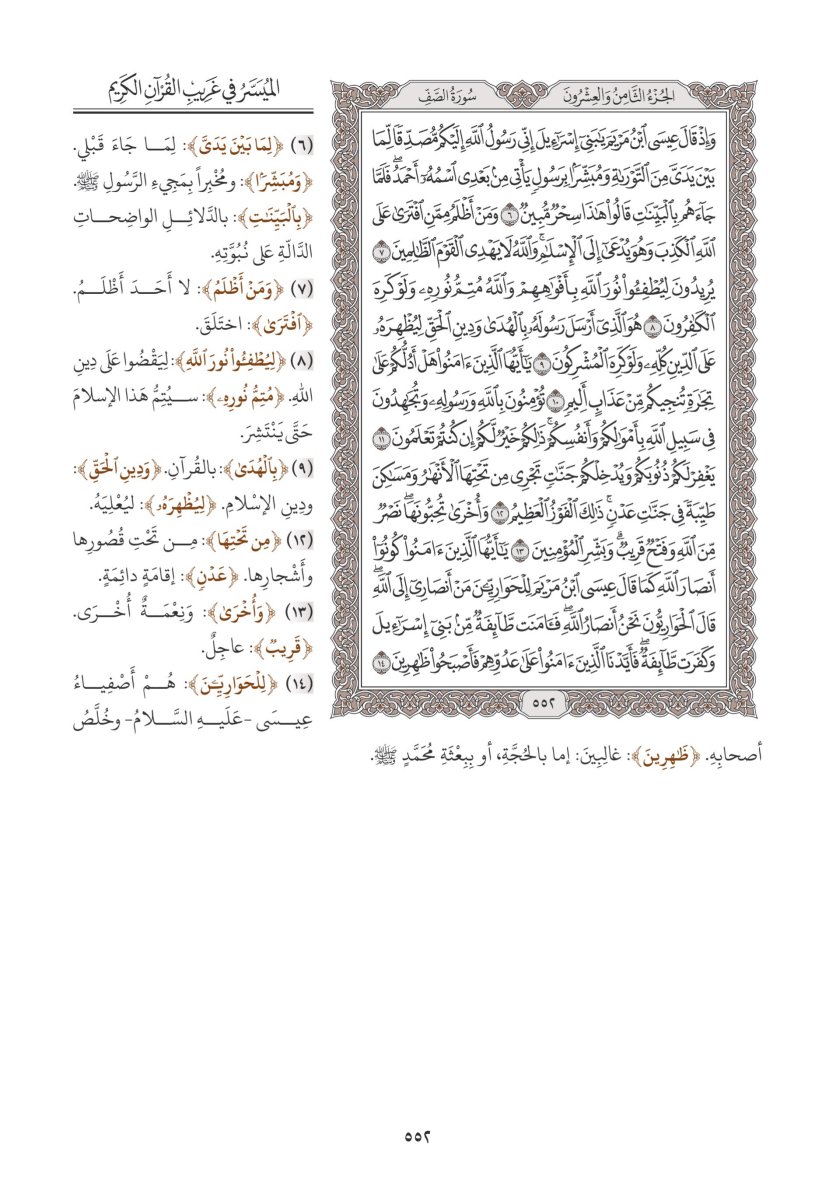 الجُزْءُ الثَّامِنُ وَالعِشْرُونَ
سُورَةُ الصَّفِّ
وَإِذْ قَالَ عِيسَى ٱبْنُ مَرْيَمَ يَٰبَنِىٓ إِسْرَٰٓءِيلَ إِنِّى رَسُولُ ٱللَّهِ إِلَيْكُم مُّصَدِّقًا لِّمَا
بَيْنَ يَدَىَّ مِنَ ٱلتَّوْرَىٰةِ وَمُبَشِّرًۢا بِرَسُولٍ يَأْتِى مِنۢ بَعْدِى ٱسْمُهُۥٓ أَحْمَدُ ۖ فَلَمَّا
جَآءَهُم بِٱلْبَيِّنَٰتِ قَالُوا۟ هَٰذَا سِحْرٌ مُّبِينٌ ٦ وَمَنْ أَظْلَمُ مِمَّنِ ٱفْتَرَىٰ عَلَى
ٱللَّهِ ٱلْكَذِبَ وَهُوَ يُدْعَىٰٓ إِلَى ٱلْإِسْلَٰمِ ۚ وَٱللَّهُ لَا يَهْدِى ٱلْقَوْمَ ٱلظَّٰلِمِينَ ٧
يُرِيدُونَ لِيُطْفِـُٔوا۟ نُورَ ٱللَّهِ بِأَفْوَٰهِهِمْ وَٱللَّهُ مُتِمُّ نُورِهِۦ وَلَوْ كَرِهَ
ٱلْكَٰفِرُونَ ٨ هُوَ ٱلَّذِىٓ أَرْسَلَ رَسُولَهُۥ بِٱلْهُدَىٰ وَدِينِ ٱلْحَقِّ لِيُظْهِرَهُۥ
عَلَى ٱلدِّينِ كُلِّهِۦ وَلَوْ كَرِهَ ٱلْمُشْرِكُونَ ٩ يَٰٓأَيُّهَا ٱلَّذِينَ ءَامَنُوا۟ هَلْ أَدُلُّكُمْ عَلَىٰ
تِجَٰرَةٍ تُنجِيكُم مِّنْ عَذَابٍ أَلِيمٍ ١٠ تُؤْمِنُونَ بِٱللَّهِ وَرَسُولِهِۦ وَتُجَٰهِدُونَ
فِى سَبِيلِ ٱللَّهِ بِأَمْوَٰلِكُمْ وَأَنفُسِكُمْ ۚ ذَٰلِكُمْ خَيْرٌ لَّكُمْ إِن كُنتُمْ تَعْلَمُونَ ١١
يَغْفِرْ لَكُمْ ذُنُوبَكُمْ وَيُدْخِلْكُمْ جَنَّٰتٍ تَجْرِى مِن تَحْتِهَا ٱلْأَنْهَٰرُ وَمَسَٰكِنَ
طَيِّبَةً فِى جَنَّٰتِ عَدْنٍ ۚ ذَٰلِكَ ٱلْفَوْزُ ٱلْعَظِيمُ ١٢ وَأُخْرَىٰ تُحِبُّونَهَا ۖ نَصْرٌ
مِّنَ ٱللَّهِ وَفَتْحٌ قَرِيبٌ ۗ وَبَشِّرِ ٱلْمُؤْمِنِينَ ١٣ يَٰٓأَيُّهَا ٱلَّذِينَ ءَامَنُوا۟ كُونُوٓا۟
أَنصَارَ ٱللَّهِ كَمَا قَالَ عِيسَى ٱبْنُ مَرْيَمَ لِلْحَوَارِيِّـۧنَ مَنْ أَنصَارِىٓ إِلَى ٱللَّهِ ۖ
قَالَ ٱلْحَوَارِيُّونَ نَحْنُ أَنصَارُ ٱللَّهِ ۖ فَـَٔامَنَت طَّآئِفَةٌ مِّنۢ بَنِىٓ إِسْرَٰٓءِيلَ
وَكَفَرَت طَّآئِفَةٌ ۖ فَأَيَّدْنَا ٱلَّذِينَ ءَامَنُوا۟ عَلَىٰ عَدُوِّهِمْ فَأَصْبَحُوا۟ ظَٰهِرِينَ ١٤
٥٥٢
المُيَسَّرُ في غَرِيبِ القُرْآنِ الكَرِيم
(٦) ﴿لِمَا بَيْنَ يَدَىَّ﴾: لِمَا جَاءَ قَبْلِي.
﴿وَمُبَشِّرًا﴾: ومُخْبِراً بِمَجِيءِ الرَّسُولِ ﷺ.
﴿بِٱلْبَيِّنَٰتِ﴾: بالدَّلائِلِ الواضِحاتِ
الدَّالَّةِ عَلى نُبُوَّتِهِ.
(٧) ﴿وَمَنْ أَظْلَمُ﴾: لا أَحَدَ أَظْلَمُ.
﴿ٱفْتَرَىٰ﴾: اختَلَقَ.
(٨) ﴿لِيُطْفِـُٔوا۟ نُورَ ٱللَّهِ﴾: لِيَقْضُوا عَلى دِينِ
اللهِ. ﴿مُتِمُّ نُورِهِۦ﴾: سيُتِمُّ هَذا الإسلامَ
حَتَّى يَنْتَشِرَ.
(٩) ﴿بِٱلْهُدَىٰ﴾: بالقُرآنِ. ﴿وَدِينِ ٱلْحَقِّ﴾:
ودِينِ الإسْلامِ. ﴿لِيُظْهِرَهُۥ﴾: ليُعْلِيَهُ.
(١٢) ﴿مِن تَحْتِهَا﴾: مِن تَحْتِ قُصُورِها
وأَشْجارِها. ﴿عَدْنٍ﴾: إقامَةٍ دائِمَةٍ.
(١٣) ﴿وَأُخْرَىٰ﴾: وَنِعْمَةٌ أُخْرَى.
﴿قَرِيبٌ﴾: عاجِلٌ.
(١٤) ﴿لِلْحَوَارِيِّـۧنَ﴾: هُمْ أَصْفِياءُ
عِيسَى -عَلَيهِ السَّلامُ- وخُلَّصُ
أصحابِهِ. ﴿ظَٰهِرِينَ﴾: غالِبِينَ: إما بالحُجَّةِ، أو بِبِعْثَةِ مُحَمَّدٍ ﷺ.
٥٥٢